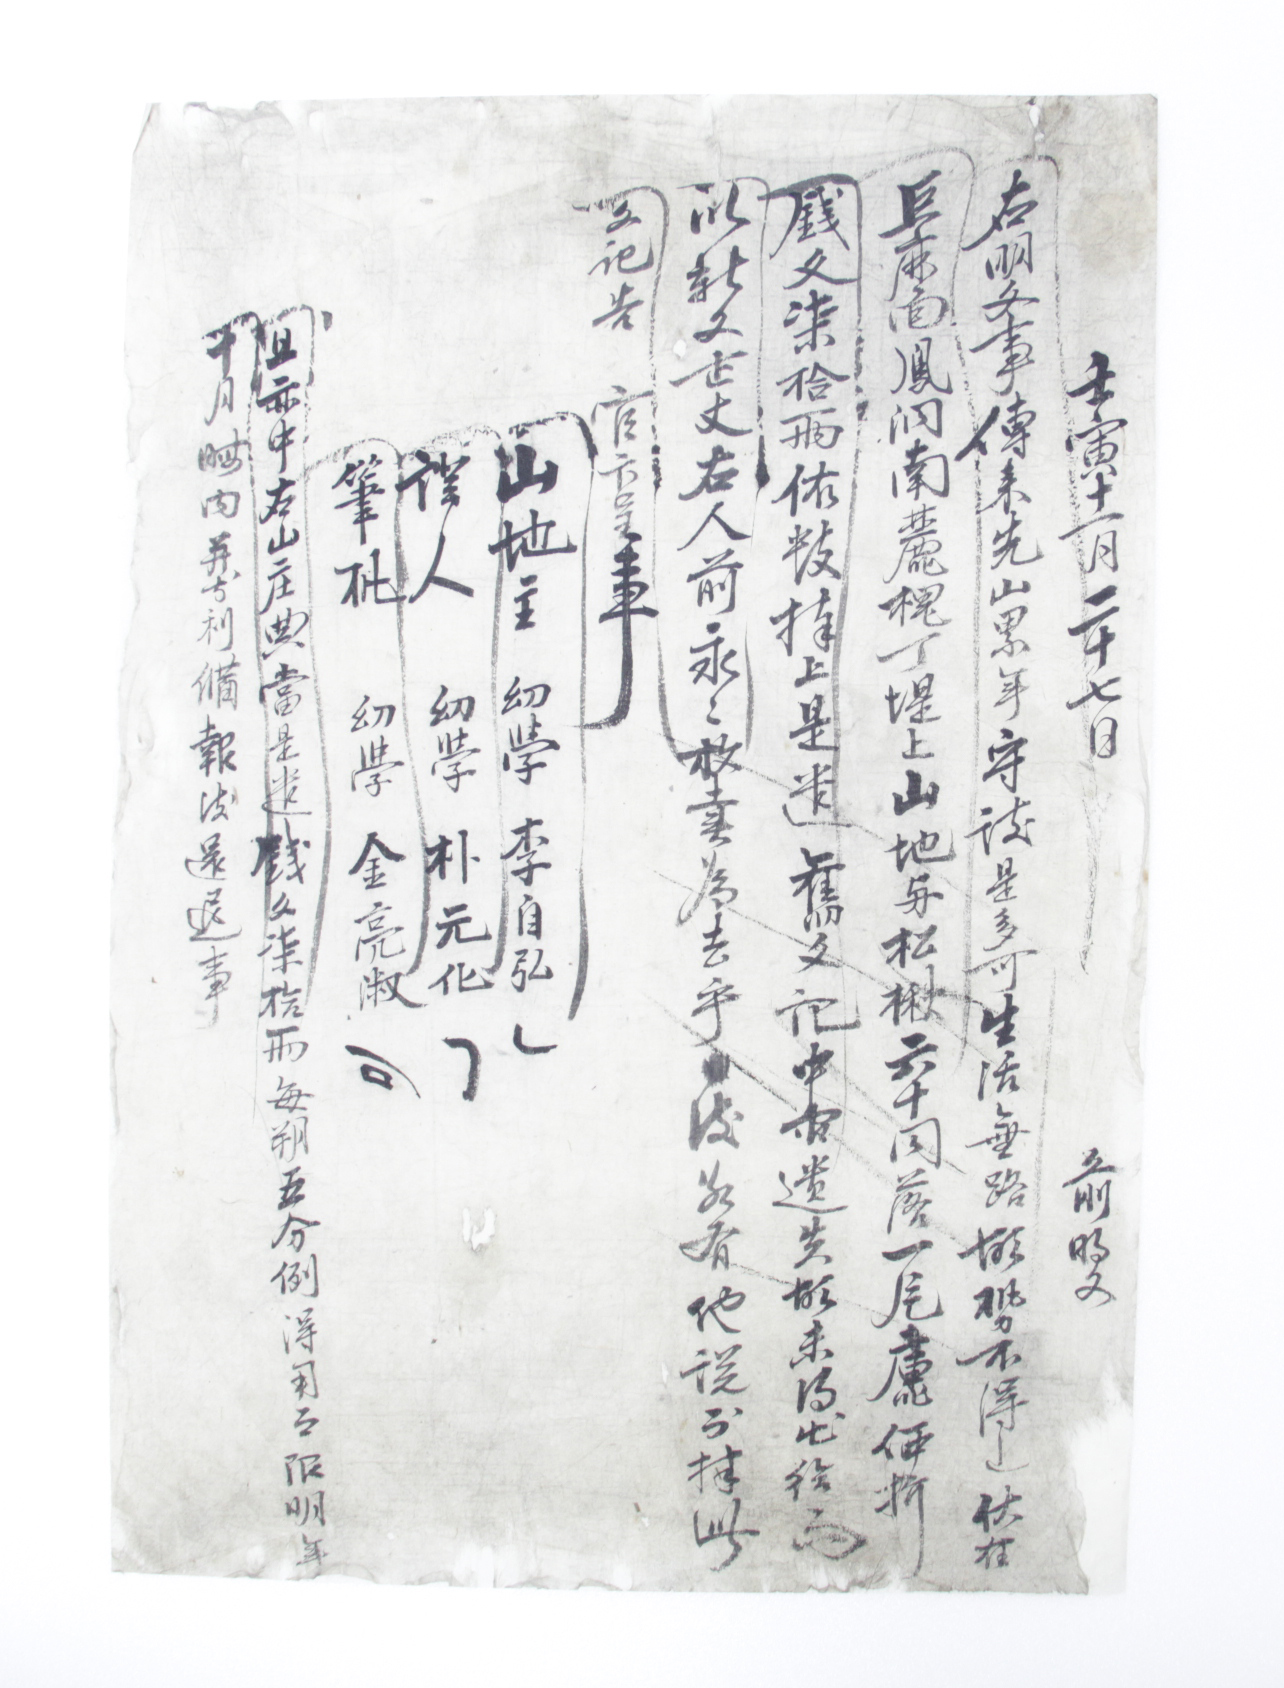 壬寅十一月二十七日 前明文
右明文事傳來先山累年守護是多可生活無路故勢不得已伏在
巨麻面鳳洞南麓槐丁堤上山地与松楸六十同落一片庫価折
錢文柒拾兩依數捧上是遣舊文記中間遺失故未得出給而
以新文一丈右人前永〻放賣爲去乎日後若有他說則持此
文記告官卞呈事
山地主 幼學 李自弘
證人 幼學 朴元化
筆執 幼學 金亮淑
且亦中右山庄典當是遣錢文柒拾兩每朔五分例得用而限明年
十月晦内幷本利備報後還退事